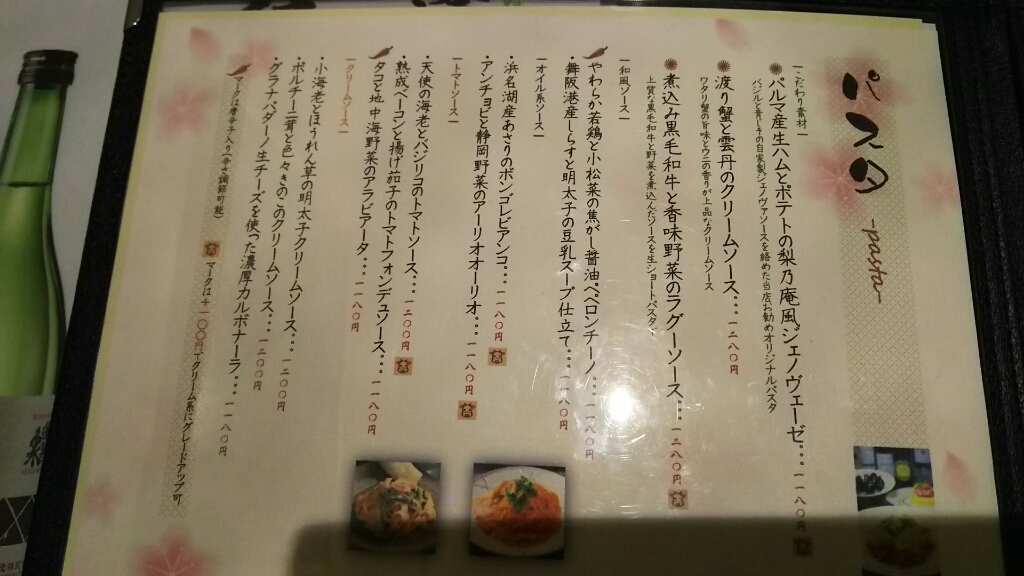 パスタ
-pasta-
―こだわり素材―
パルマ産生ハムとポテトの梨乃庵風ジェノヴェーゼ…一一八〇円
バジルと青じその自家製ジェノヴァソースを絡めた当店お勧めオリジナルパスタ
渡り蟹と雲丹のクリームソース…一二八〇円
ワタリ蟹の旨味とウニの香りが上品なクリームソース
煮込み黒毛和牛と香味野菜のラグーソース…一二八〇円
上質な黒毛和牛と野菜を煮込んだソースを生ショートパスタで
―和風ソース―
・やわらか若鶏と小松菜の焦がし醤油ペペロンチーノ…一一八〇円
・舞阪港産しらすと明太子の豆乳スープ仕立て…一一八〇円
―オイル系ソース―
・浜名湖産あさりのボンゴレビアンコ…一一八〇円
・アンチョビと静岡野菜のアーリオオーリオ…一一八〇円
―トマトソース―
・天使の海老とバジリコのトマトソース…一二〇〇円
・熟成ベーコンと揚げ茄子のトマトフォンデュソース…一一八〇円
・タコと地中海野菜のアラビアータ…一一八〇円
―クリームソース―
・小海老とほうれん草の明太子クリームソース…一二〇〇円
・ポルチーニ茸と色々きのこのクリームソース…一二〇〇円
・グラナパダーノ生チーズを使った濃厚カルボナーラ…一一八〇円
マークは唐辛子入り(辛さ調節可能)
マークは+一〇〇円でクリーム系にグレードアップ可